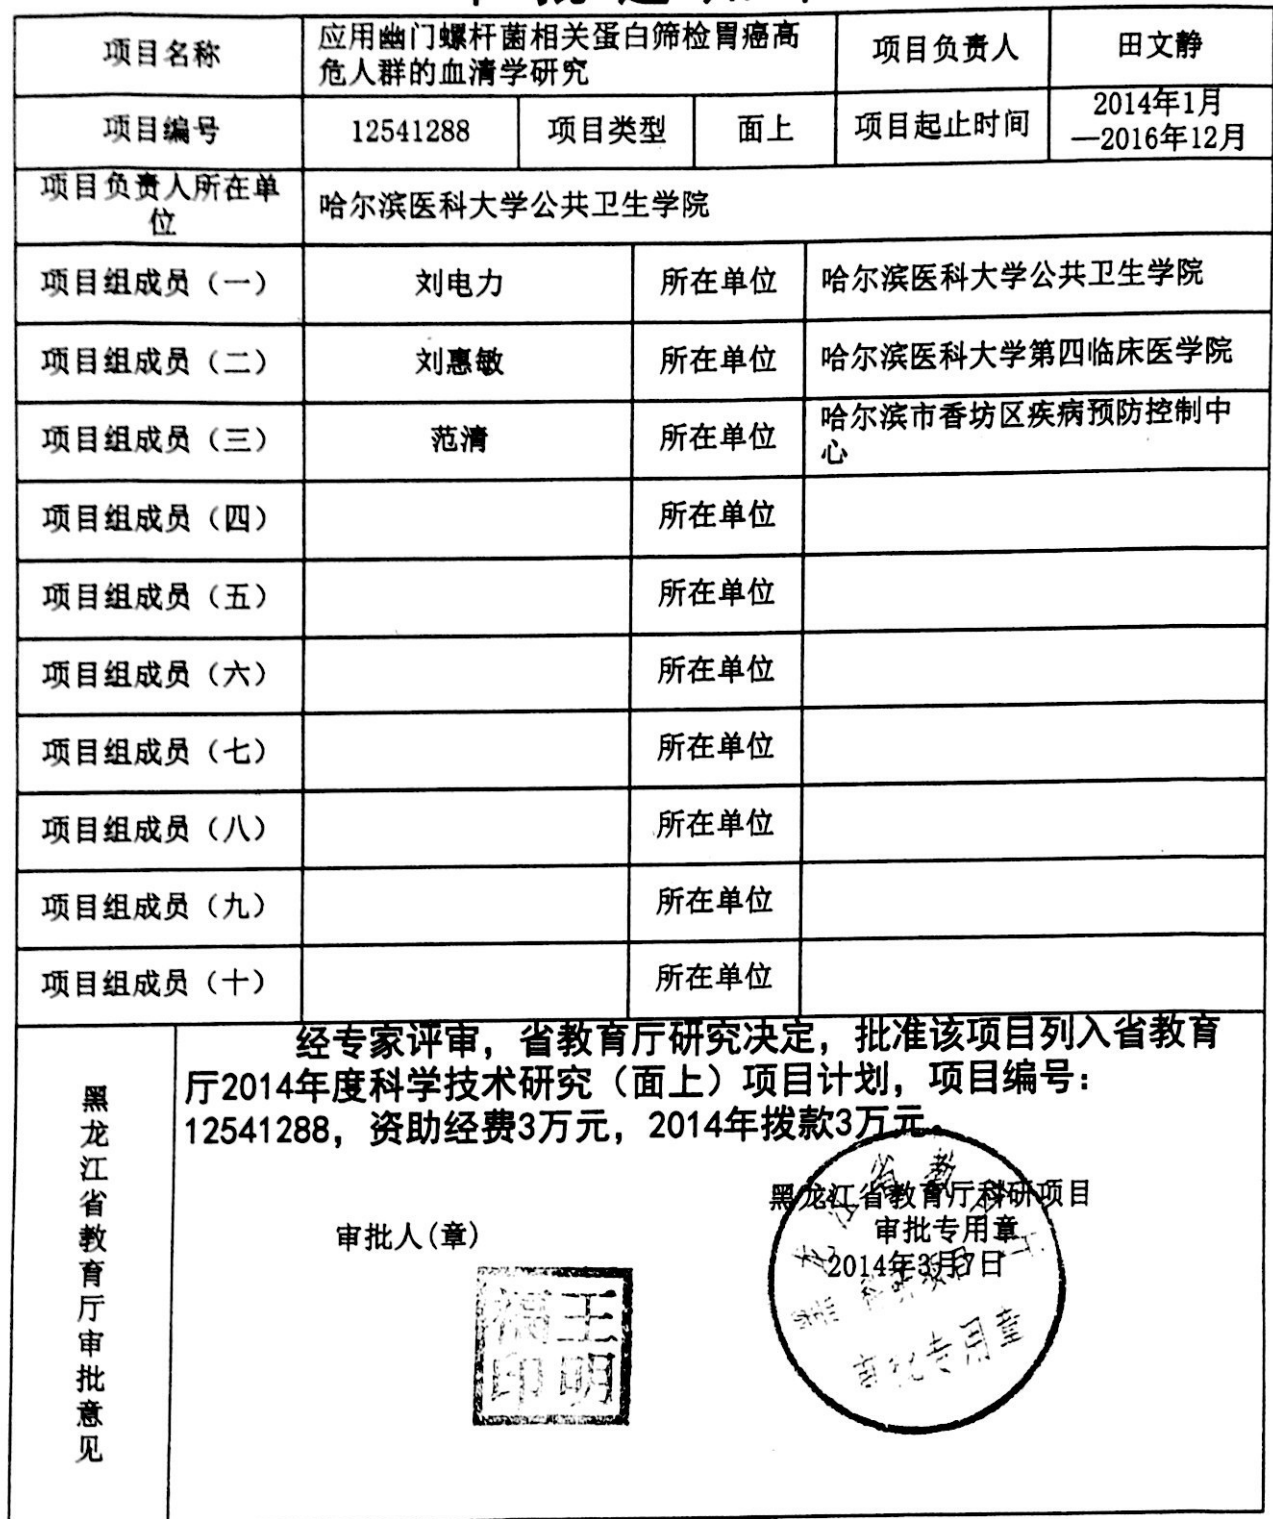 项目名称
应用幽门螺杆菌相关蛋白筛检胃癌高
危人群的血清学研究
项目负责人
田文静
项目编号
12541288
项目类型
面上
项目起止时间
2014年1月
—2016年12月
项目负责人所在单
位
哈尔滨医科大学公共卫生学院
项目组成员（一）
刘电力
所在单位
哈尔滨医科大学公共卫生学院
项目组成员（二）
刘惠敏
所在单位
哈尔滨医科大学第四临床医学院
项目组成员（三）
范清
所在单位
哈尔滨市香坊区疾病预防控制中
心
项目组成员（四）
所在单位
项目组成员（五）
所在单位
项目组成员（六）
所在单位
项目组成员（七）
所在单位
项目组成员（八）
所在单位
项目组成员（九）
所在单位
项目组成员（十）
所在单位
黑龙江省教育厅审批意见
经专家评审，省教育厅研究决定，批准该项目列入省教育
厅2014年度科学技术研究（面上）项目计划，项目编号：
12541288，资助经费3万元，2014年拨款3万元。
黑龙江省教育厅科研项目
审批专用章
2014年3月7日
审批人(章)
王明福印
审批专用章